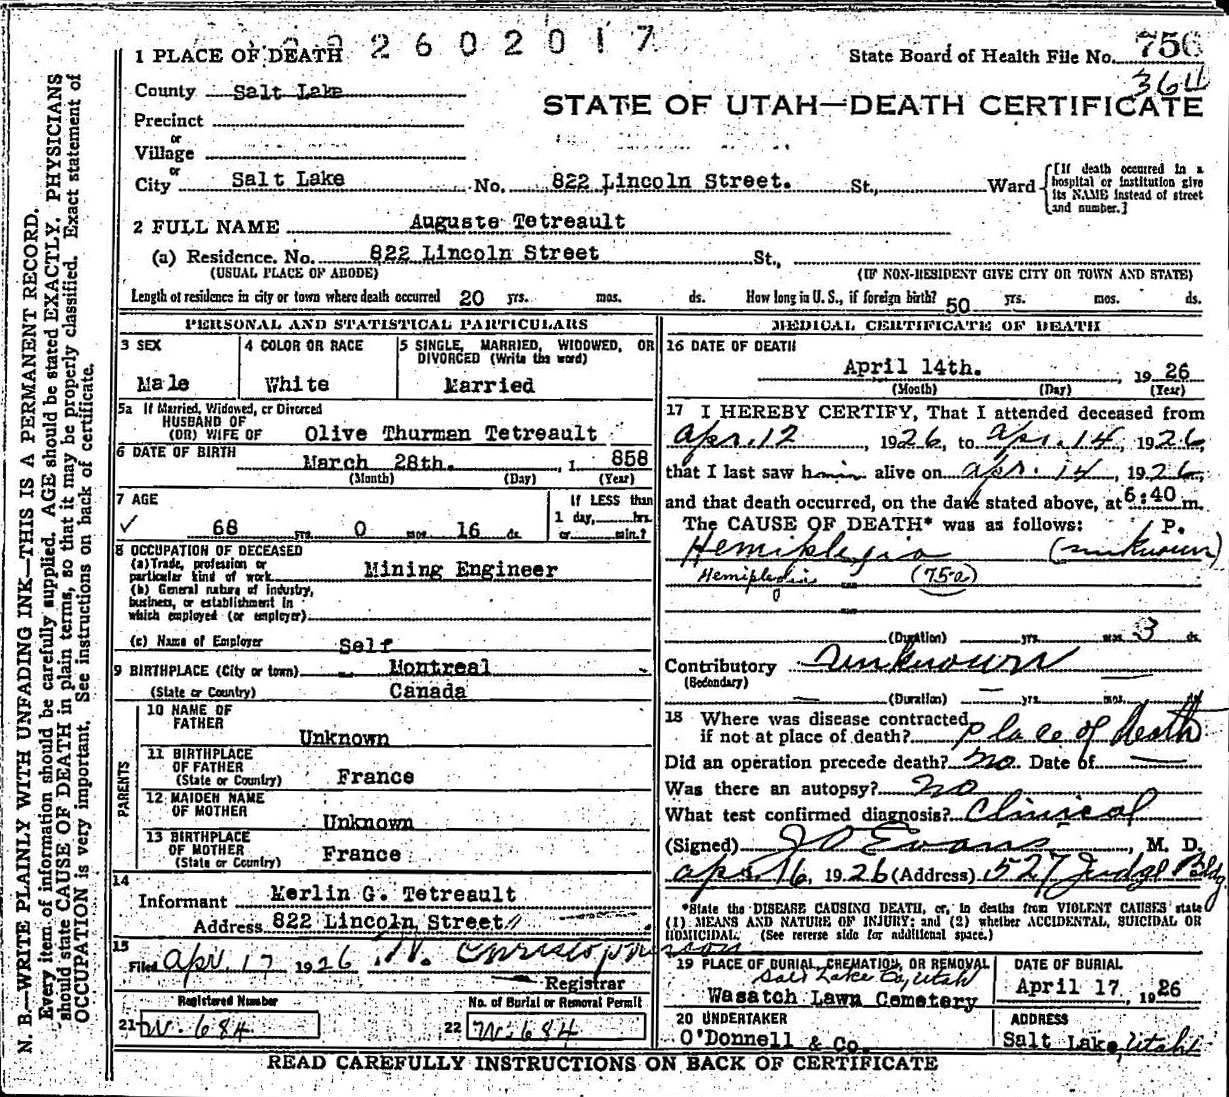 2602017
1 PLACE OF DEATH
State Board of Health File No. 756
364
County Salt Lake
STATE OF UTAH—DEATH CERTIFICATE
Precinct
or
Village
or
City Salt Lake No. 822 Lincoln Street. St., Ward
[If death occurred in a hospital or institution give its NAME instead of street and number.]
2 FULL NAME Auguste Tetreault
(a) Residence. No. 822 Lincoln Street St.,
(USUAL PLACE OF ABODE) (IF NON-RESIDENT GIVE CITY OR TOWN AND STATE)
Length of residence in city or town where death occurred 20 yrs. mos. ds. How long in U. S., if foreign birth? 50 yrs. mos. ds.
PERSONAL AND STATISTICAL PARTICULARS
3 SEX
Male
4 COLOR OR RACE
White
5 SINGLE, MARRIED, WIDOWED, OR
DIVORCED (Write the word)
Married
5a If Married, Widowed, or Divorced
HUSBAND OF
(OR) WIFE OF Olive Thurman Tetreault
6 DATE OF BIRTH March 28th. , 1 858
(Month) (Day) (Year)
7 AGE
✓ 68 yrs. 0 mos. 16 ds.
If LESS than
1 day, hrs.
or min.?
8 OCCUPATION OF DECEASED
(a) Trade, profession or
particular kind of work Mining Engineer
(b) General nature of industry,
business, or establishment in
which employed (or employer)
(c) Name of Employer Self
9 BIRTHPLACE (City or town) Montreal
(State or Country) Canada
PARENTS
10 NAME OF
FATHER Unknown
11 BIRTHPLACE
OF FATHER
(State or Country) France
12 MAIDEN NAME
OF MOTHER Unknown
13 BIRTHPLACE
OF MOTHER
(State or Country) France
14
Informant Merlin G. Tetreault
Address 822 Lincoln Street
15
Filed Apr. 17 1926 Christopherson
Registrar
Registered Number
21 W-684
No. of Burial or Removal Permit
22 W-684
MEDICAL CERTIFICATE OF DEATH
16 DATE OF DEATH
April 14th. , 19 26
(Month) (Day) (Year)
17 I HEREBY CERTIFY, That I attended deceased from
Apr. 12, 1926, to Apr. 14, 1926,
that I last saw him alive on Apr. 14, 1926,
and that death occurred, on the date stated above, at 6:40 m.
The CAUSE OF DEATH* was as follows: P.
Hemiplegia (unknown)
Hemiplegia (75a)
(Duration) yrs. mos. 3 ds.
Contributory unknown
(Secondary)
(Duration) yrs. mos. ds.
18 Where was disease contracted
if not at place of death? place of death
Did an operation precede death? no Date of —
Was there an autopsy? no
What test confirmed diagnosis? Clinical
(Signed) J O Evans, M. D.
Apr. 16, 1926 (Address) 527 Judge Bldg
*State the DISEASE CAUSING DEATH, or, in deaths from VIOLENT CAUSES state
(1) MEANS AND NATURE OF INJURY; and (2) whether ACCIDENTAL, SUICIDAL OR
HOMICIDAL. (See reverse side for additional space.)
19 PLACE OF BURIAL, CREMATION, OR REMOVAL
Salt Lake Co, Utah
Wasatch Lawn Cemetery
DATE OF BURIAL
April 17 , 1926
20 UNDERTAKER
O'Donnell & Co.
ADDRESS
Salt Lake, Utah
READ CAREFULLY INSTRUCTIONS ON BACK OF CERTIFICATE
N. B.—WRITE PLAINLY WITH UNFADING INK—THIS IS A PERMANENT RECORD.
Every item of information should be carefully supplied. AGE should be stated EXACTLY. PHYSICIANS
should state CAUSE OF DEATH in plain terms, so that it may be properly classified. Exact statement of
OCCUPATION is very important. See instructions on back of certificate.